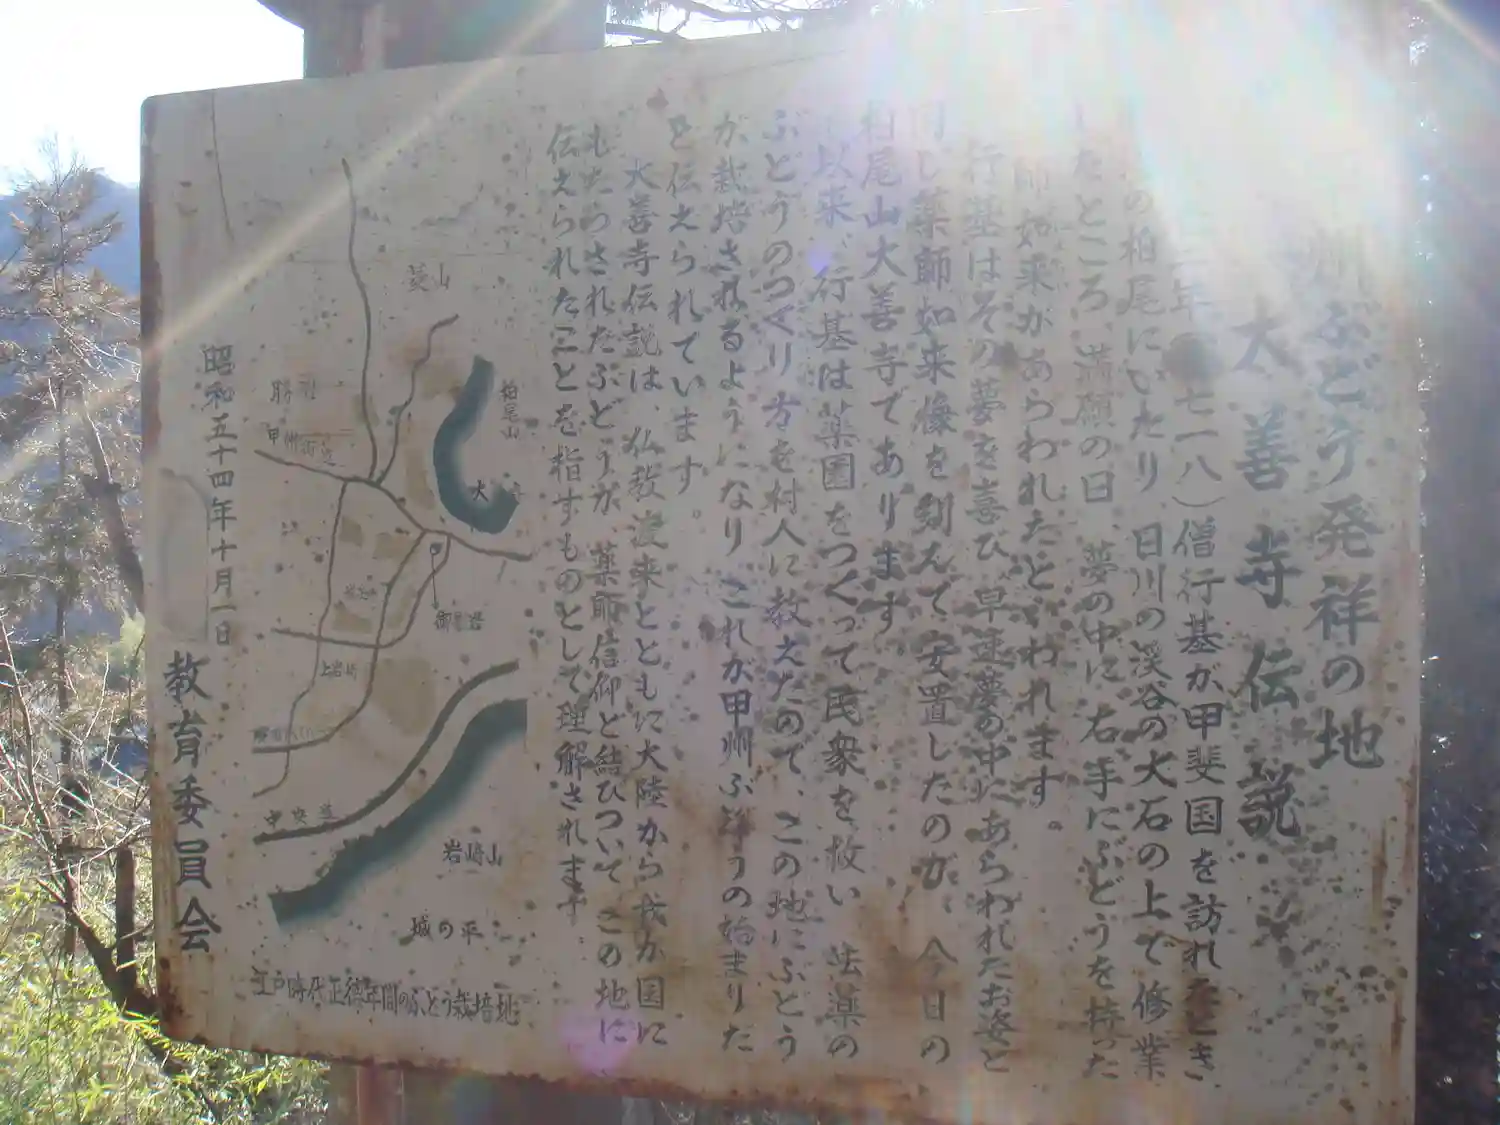 州ぶどう発祥の地
大善寺伝説
三年（七一八）僧行基が甲斐国を訪れたとき
の柏尾にいたり 日川の渓谷の大石の上で修業
したところ、満願の日、夢の中に右手にぶどうを持った
師如来があらわれたといわれます。
行基はその夢を喜び早速夢の中にあらわれたお姿と
同じ薬師如来像を刻んで安置したのが、今日の
柏尾山大善寺であります
以来、行基は薬園をつくって民衆を救い 法薬の
ぶどうのつくり方を村人に教えたので、この地にぶどう
が栽培されるようになり これが甲州ぶどうの始まりだ
と伝えられています。
大善寺伝説は、仏教渡来とともに大陸から我が国に
もたらされたぶどうが、薬師信仰と結びついて この地に
伝えられたことを指すものとして理解されます
菱山
勝沼
甲州街道
柏尾山
大
上岩崎
中央道
岩崎山
城の平
江戸時代正徳年間のぶどう栽培地
昭和五十四年十月一日
教育委員会